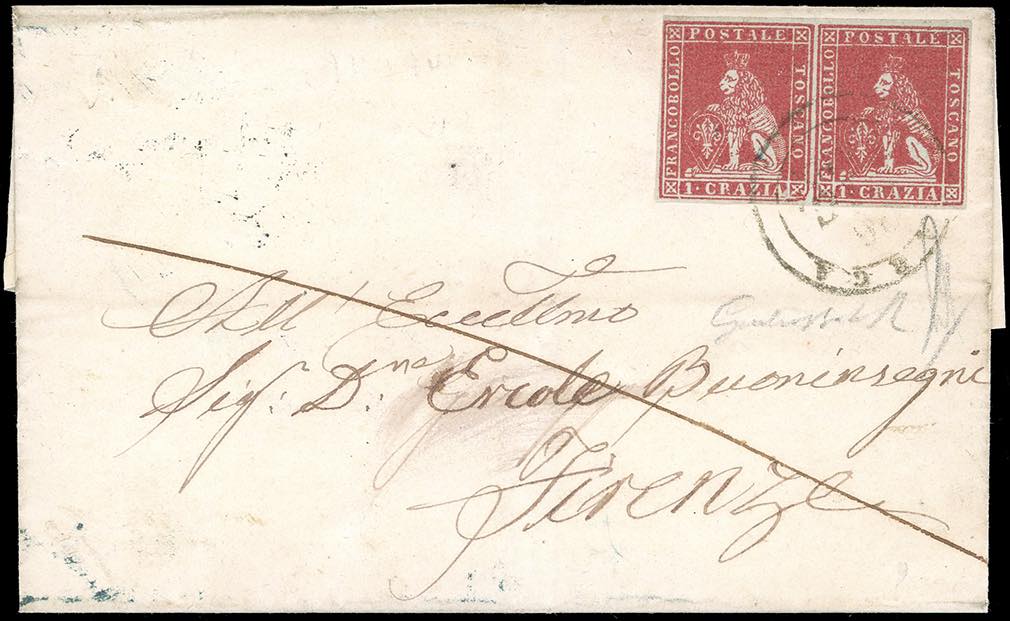 POSTALE
FRANCOBOLLO
TOSCANO
1 · CRAZIA
POSTALE
FRANCOBOLLO
TOSCANO
1 · CRAZIA
All' Eccellmo
Sigr: Dne Ercole Buoninsegni
Firenze